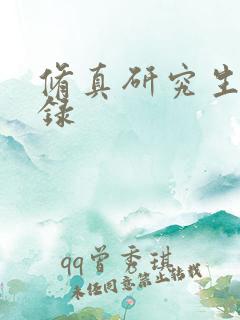 脩真研究生
録
qq曾秀琪
未经同意禁止转载